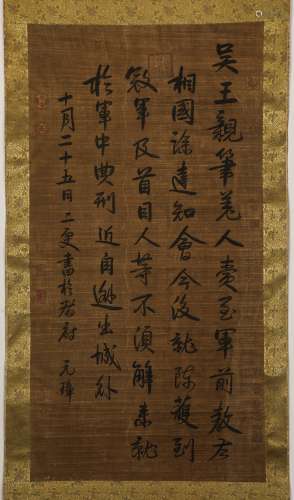 吴王親筆差人賫至軍前教左
相國徐達知會今後就陣獲到
寇軍及首目人等不須解来就
於軍中典刑近自遯出城外
十月二十五日二更書於
元璋